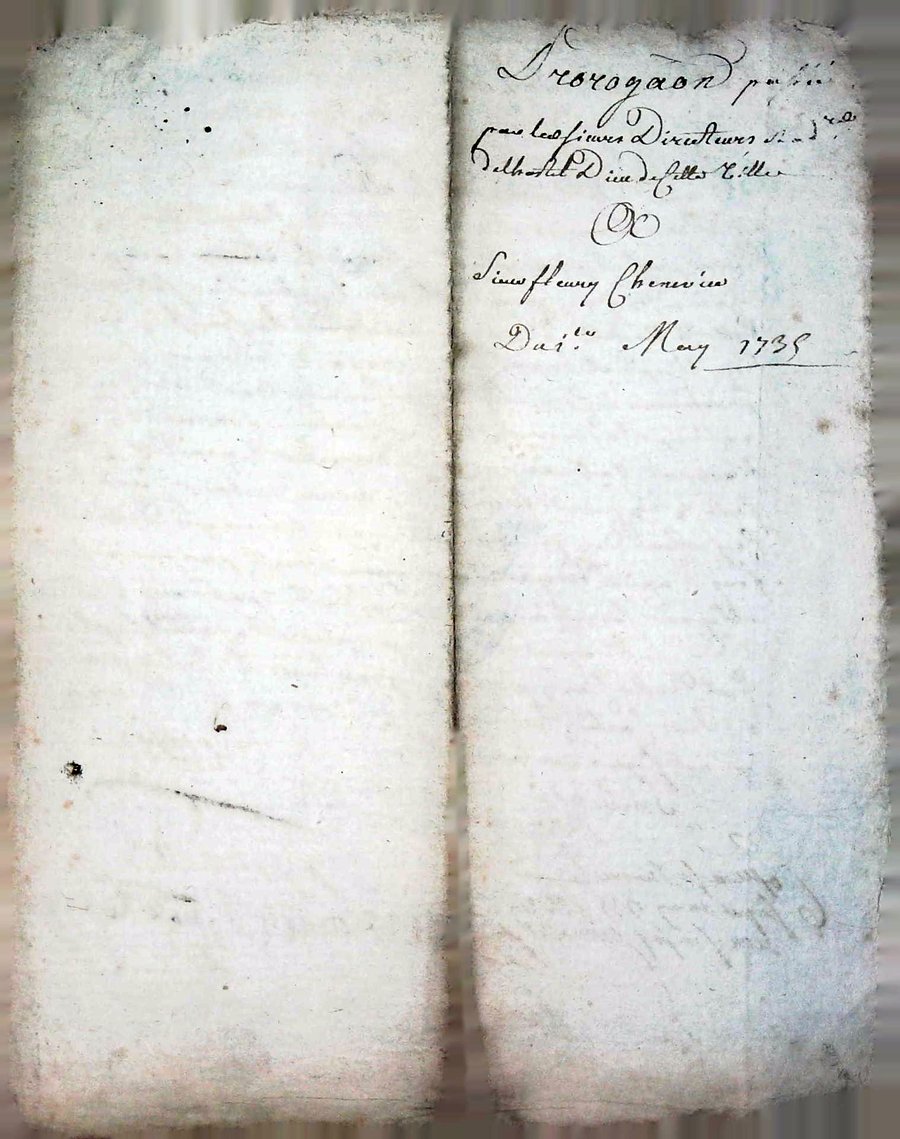 Prorogaon passée
par les sieurs Directeurs
de lhostel Dieu de Cette Ville
A
Sieur fleury Chenevier
Du 1er May 1735